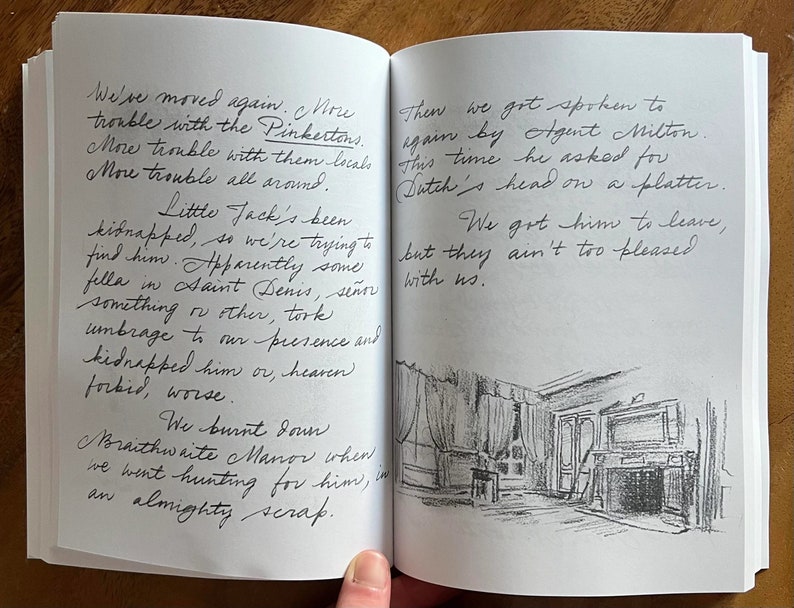 We've moved again. More
trouble with the Pinkertons.
More trouble with them locals
More trouble all around.
Little Jack's been
kidnapped, so we're trying to
find him. Apparently some
fella in Saint Denis, señor
something or other, took
umbrage to our presence and
kidnapped him or, heaven
forbid, worse.
We burnt down
Braithwaite Manor when
we went hunting for him, in
an almighty scrap.
Then we got spoken to
again by Agent Milton.
This time he asked for
Dutch's head on a platter.
We got him to leave,
but they ain't too pleased
with us.